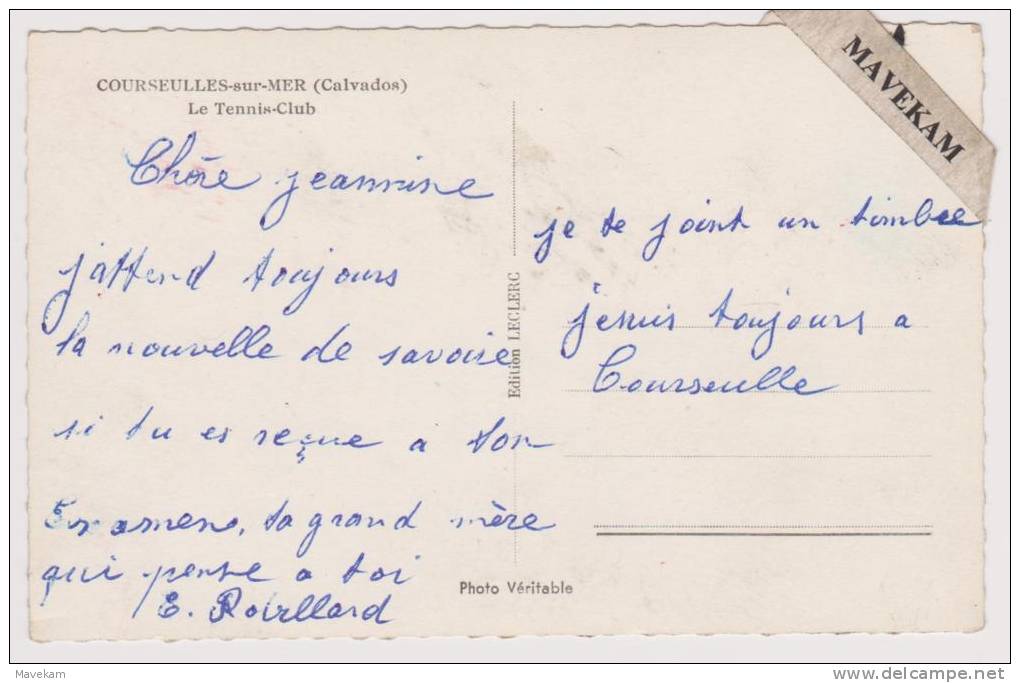 COURSEULLES-sur-MER (Calvados)
Le Tennis-Club
MAVEKAM
Chère jeannine
j'attend toujours
la nouvelle de savoire
si tu es reçue a ton
Examens, ta grand mère
qui pense a toi
E. Rouillard
Edition LECLERC
je te joint un timbre
jesuis toujours a
Courseulle
Photo Véritable
Mavekam
delcampe.net